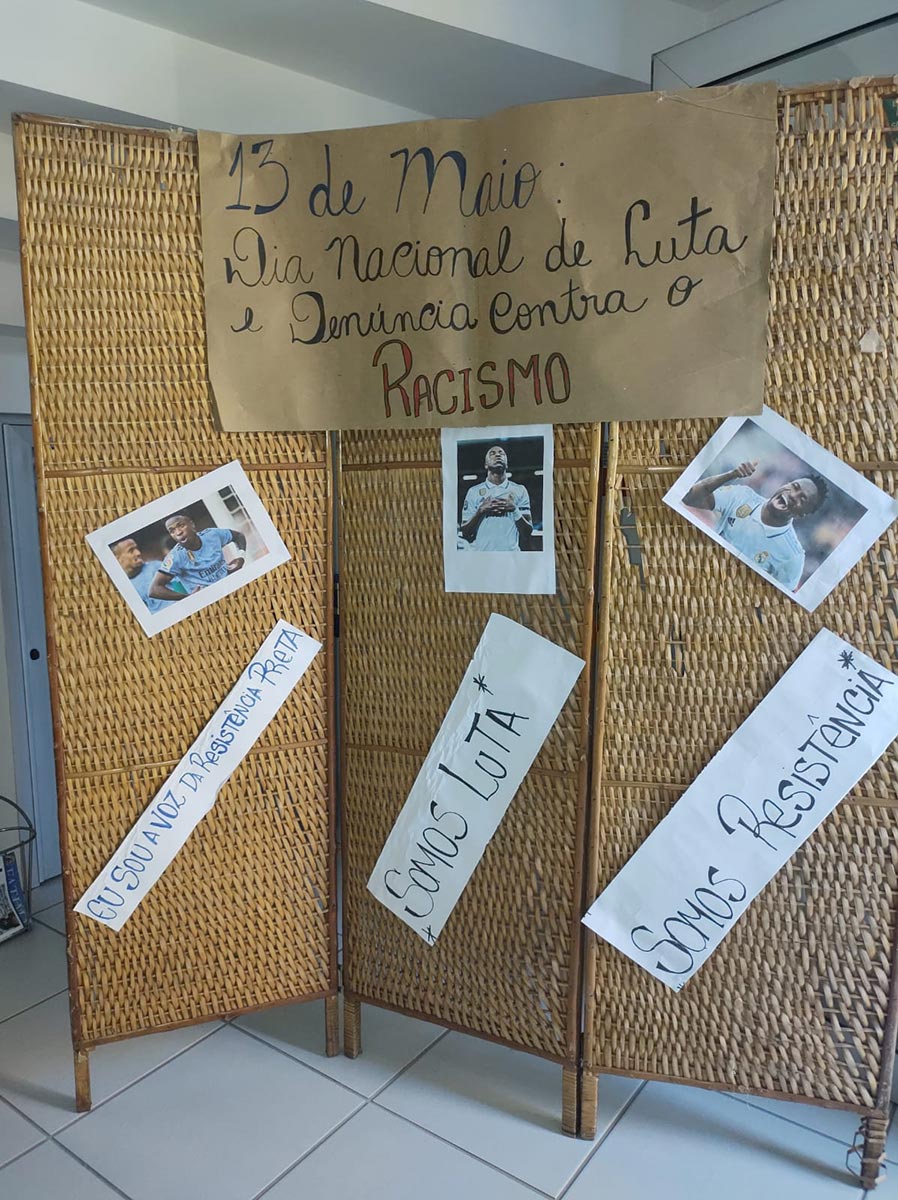 13 de Maio:
Dia Nacional de Luta
e Denúncia contra o
RACISMO
EU SOU A VOZ DA RESISTÊNCIA PRETA
SOMOS LUTA*
SOMOS RESISTÊNCIA*